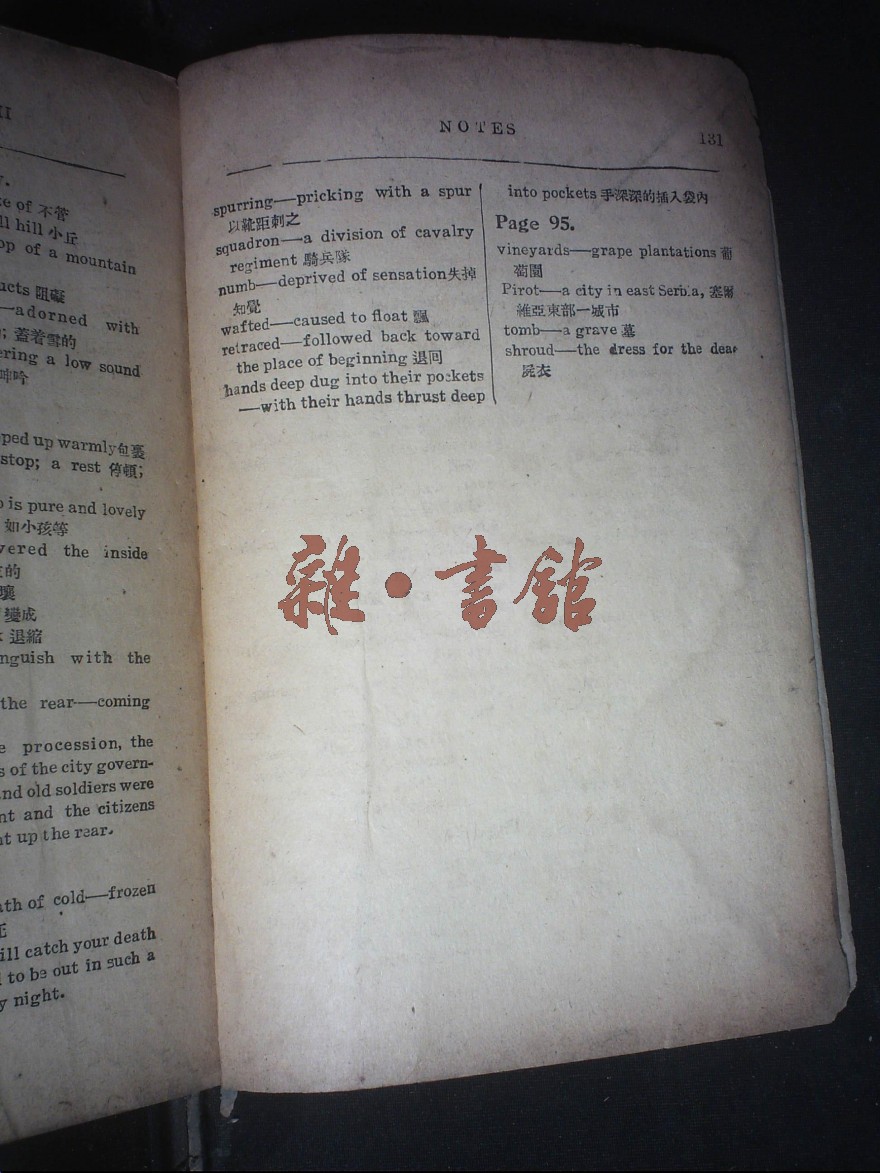 II
y.
ke of 不管
ll hill 小丘
op of a mountain
ucts 阻礙
—adorned with
; 蓋着雪的
ering a low sound
呻吟
ped up warmly包裹
stop; a rest 停頓;
o is pure and lovely
如小孩等
vered the inside
的
壞
變成
退縮
nguish with the
the rear—coming
e procession, the
s of the city govern-
and old soldiers were
nt and the citizens
ht up the rear.
ath of cold—frozen
ill catch your death
l to be out in such a
y night.
NOTES
131
spurring—pricking with a spur
以靴距刺之
squadron—a division of cavalry
regiment 騎兵隊
numb—deprived of sensation失掉
知覺
wafted—caused to float 飄
retraced—followed back toward
the place of beginning 退回
hands deep dug into their pockets
—with their hands thrust deep
into pockets 手深深的插入袋內
Page 95.
vineyards—grape plantations 葡
萄園
Pirot—a city in east Serbia, 塞爾
維亞東部一城市
tomb—a grave 墓
shroud—the dress for the dead
屍衣
雜·書館